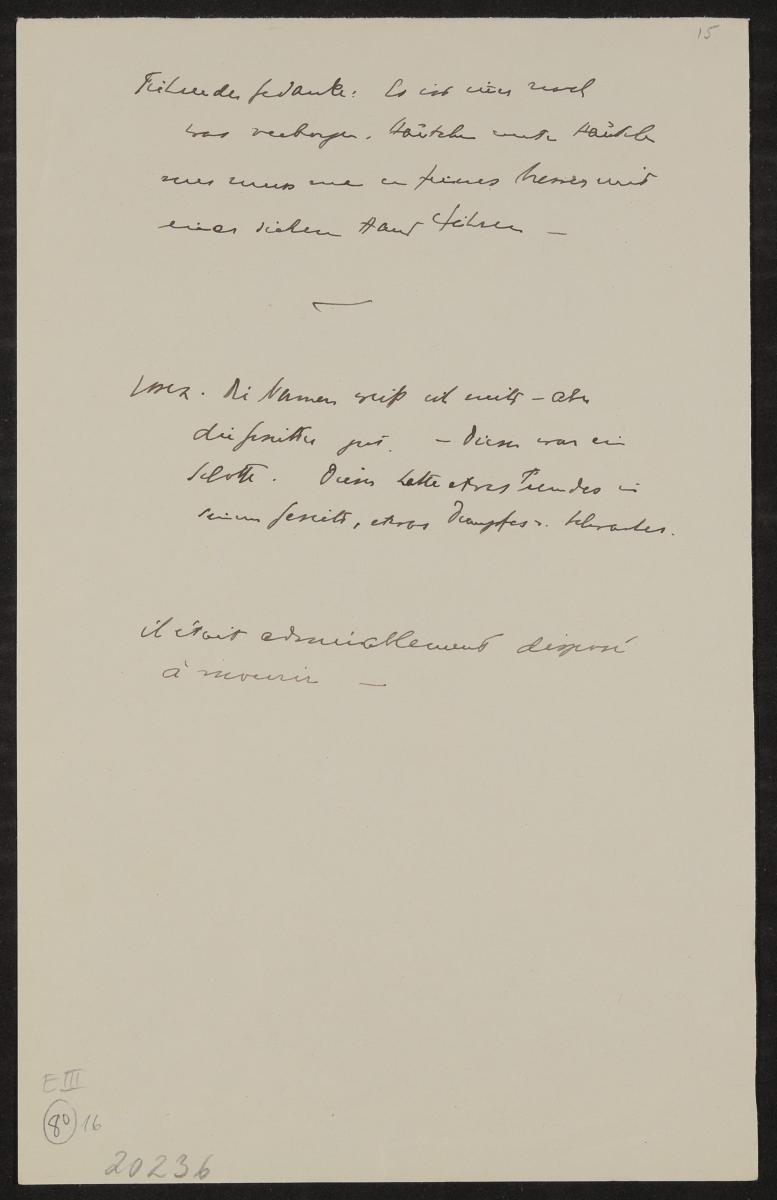 15
Führender Gedanke: Es ist hier noch
was verborgen. Häutchen unter Häutchen
nur muss man ein feines Messer mit
einer sichern Hand führen —
Die Namen weiß ich nicht – aber
die Gesichter gut. – Dieser war ein
Schotte. Dieser hatte etwas Fremdes in
seinem Gesicht, etwas Dumpfes u. Schwaches.
il était admirablement disposé
à mourir —
E III
8° 16
20236